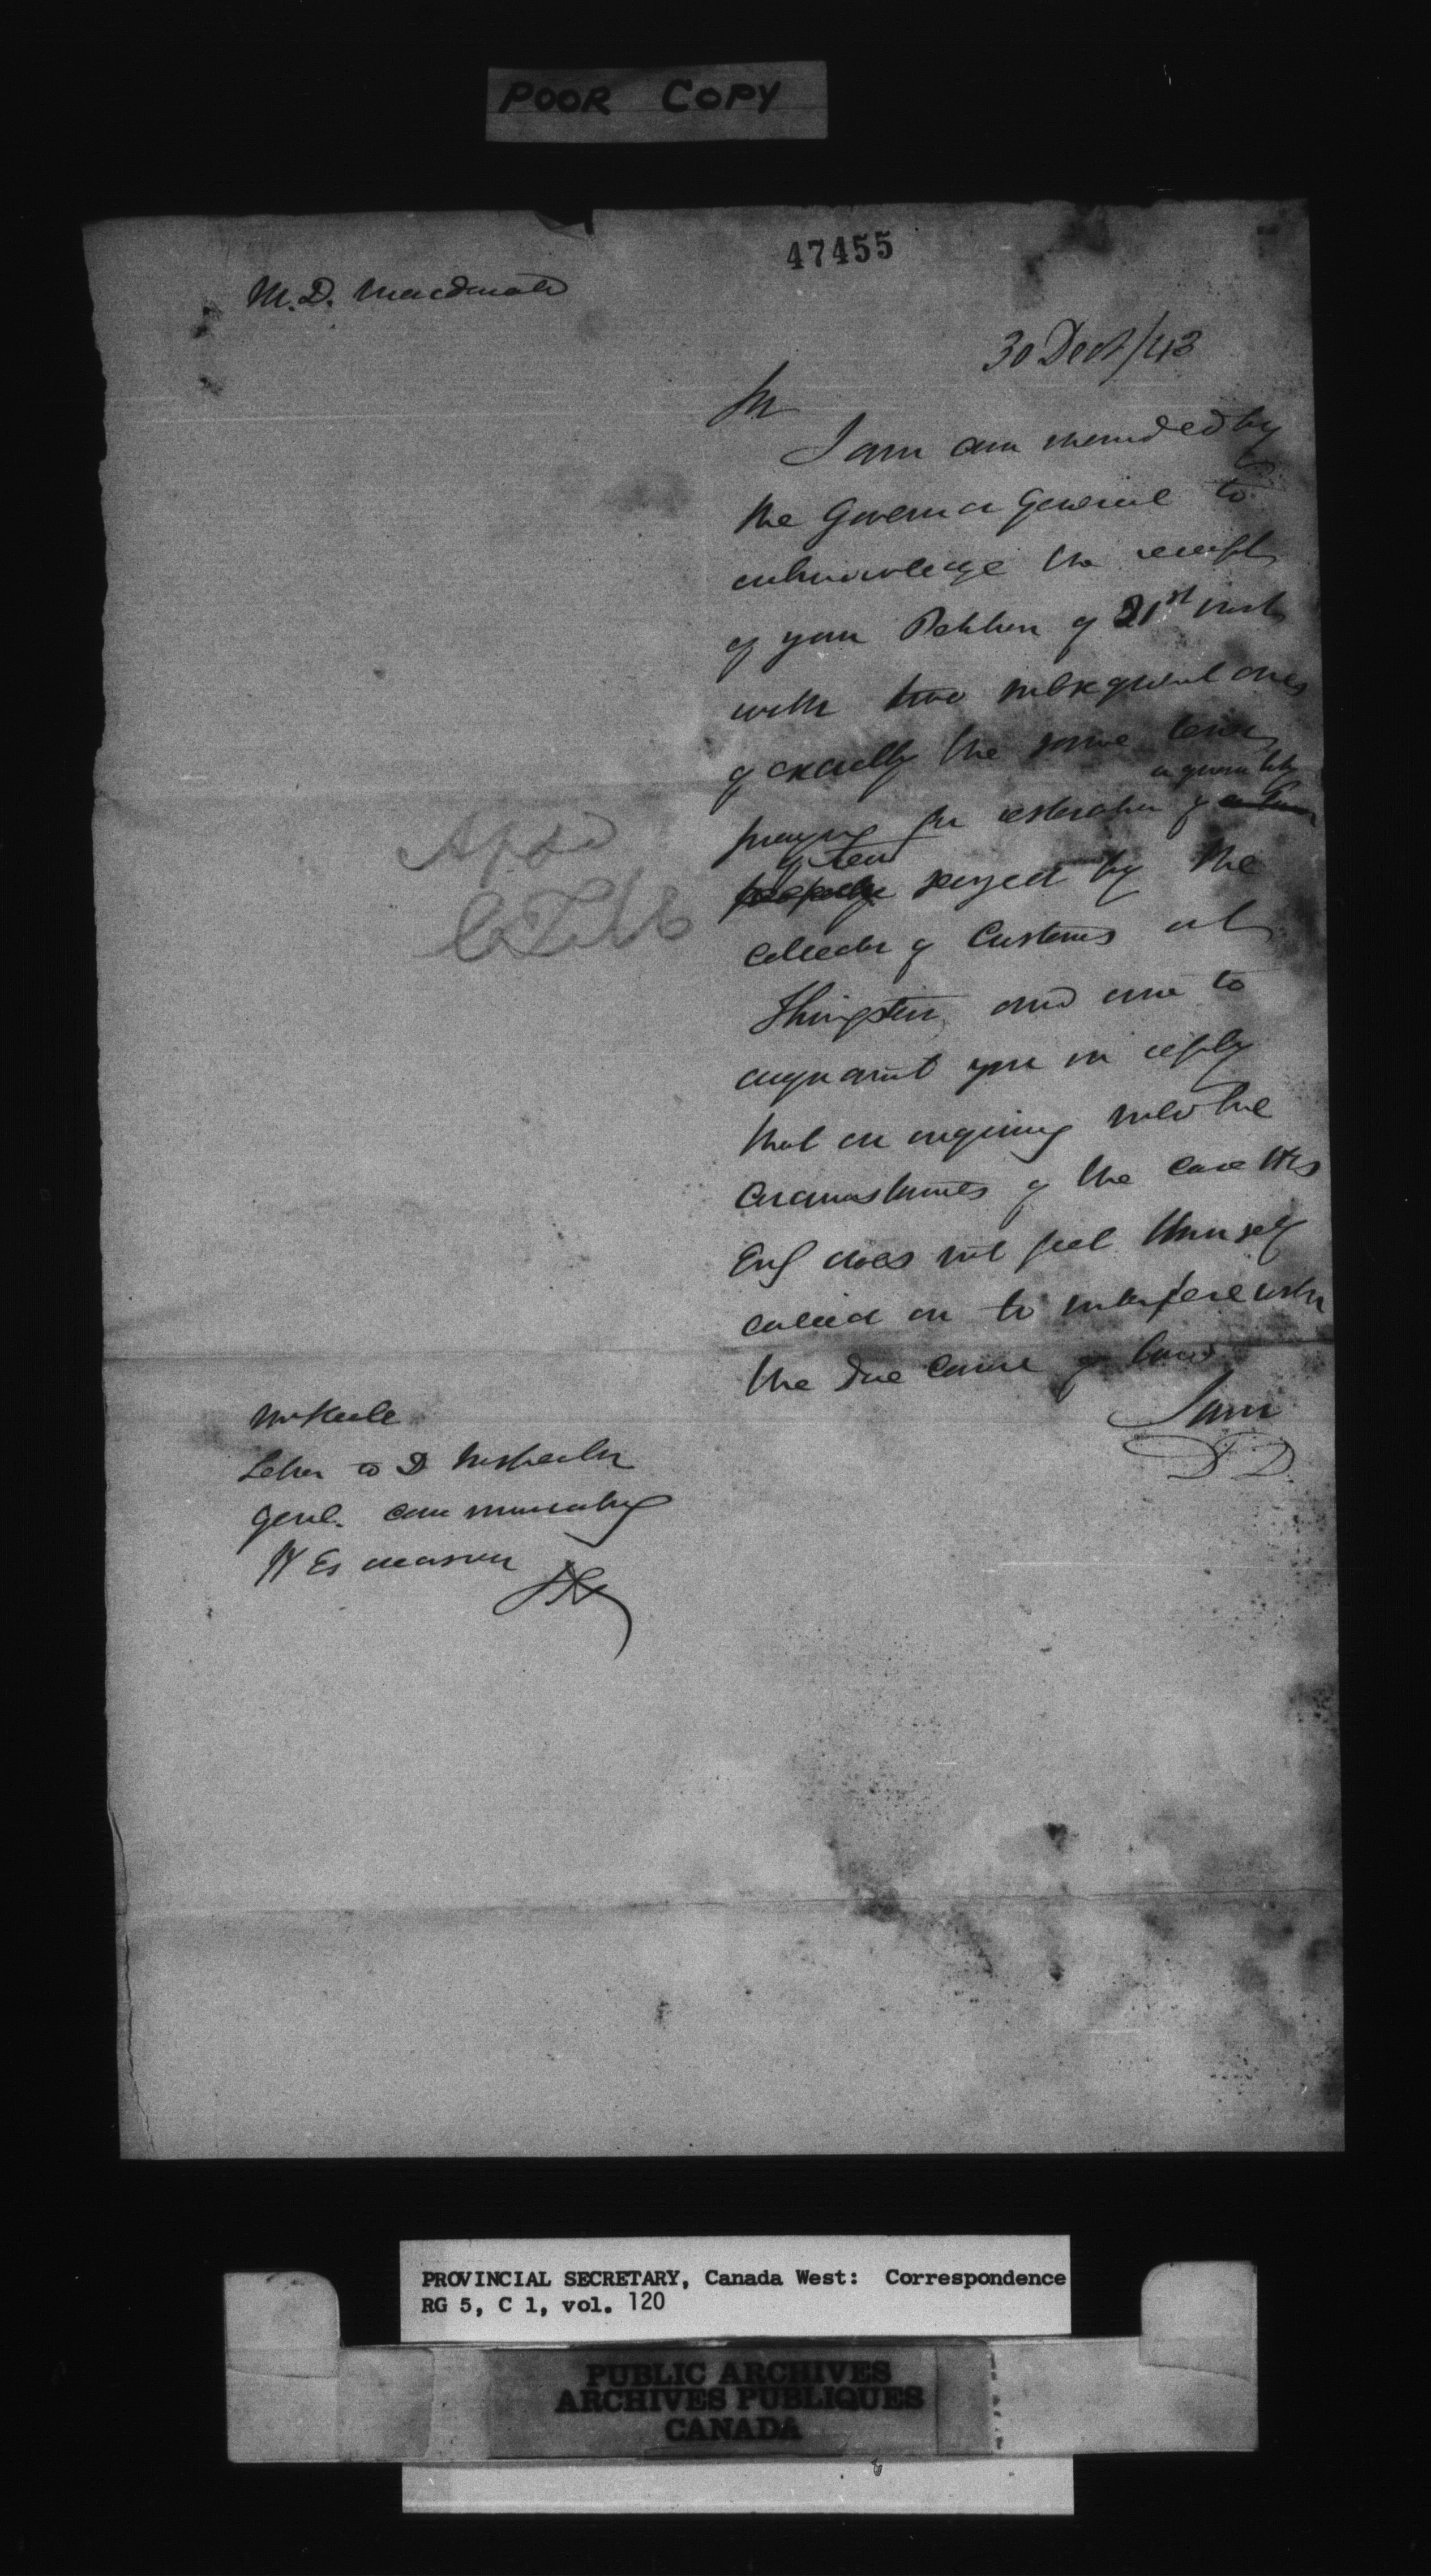 POOR COPY
47455
M. D. Macdonald
30 Decr/43
Sir
I am commanded by
the Governor General to
acknowledge the receipt
of your Petition of 21st inst
with two subsequent ones
of exactly the same tenor
praying for restoration of a quantity
of Tea seized by the
Collector of Customs at
Kingston, and am to
acquaint you in reply
that on enquiry into the
circumstances of the case His
Exy does not feel himself
called on to interfere with
the due course of law
I am
Appd
Mr Steele
Letter to D Inspector
Genl. communicating
H Es answer
PROVINCIAL SECRETARY, Canada West: Correspondence
RG 5, C 1, vol. 120
PUBLIC ARCHIVES
ARCHIVES PUBLIQUES
CANADA